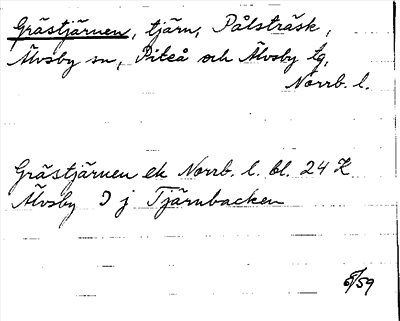 Grästjärnen, tjärn, Pålsträsk,
Älvsby sn, Piteå och Älvsby tg,
Norrb. l.
Grästjärnen ek Norrb. l. bl. 24 K
Älvsby I j Tjärnbacken
/59